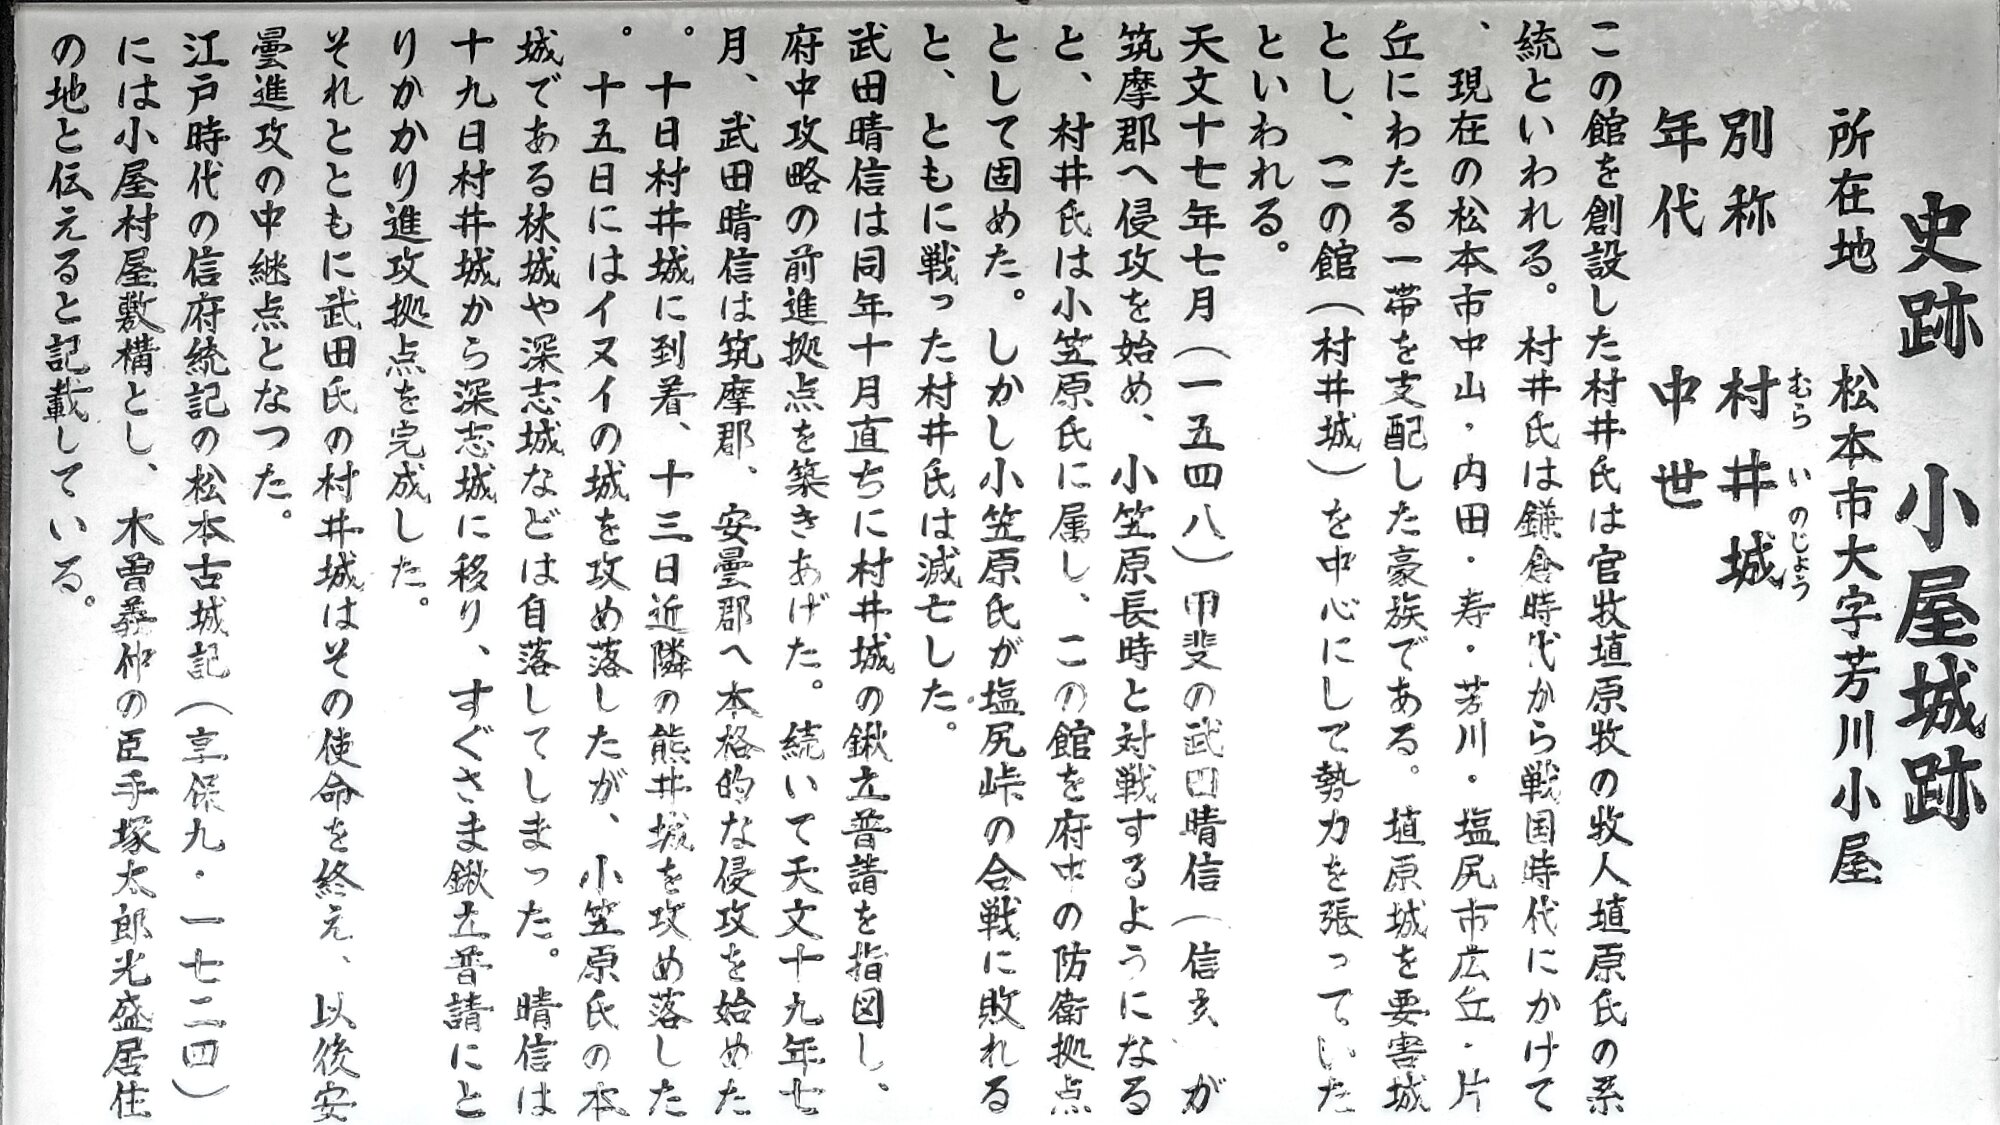 史跡 小屋城跡
所在地 松本市大字芳川小屋
むら いのじょう
別称 村井城
年代 中世
この館を創設した村井氏は官牧埴原牧の牧人埴原氏の系
統といわれる。村井氏は鎌倉時代から戦国時代にかけて
、現在の松本市中山・内田・寿・芳川・塩尻市広丘・片
丘にわたる一帯を支配した豪族である。埴原城を要害城
とし、この館(村井城)を中心にして勢力を張っていた
といわれる。
天文十七年七月(一五四八)甲斐の武田晴信(信玄 が
筑摩郡へ侵攻を始め、小笠原長時と対戦するようになる
と、村井氏は小笠原氏に属し、この館を府中の防衛拠点
として固めた。しかし小笠原氏が塩尻峠の合戦に敗れる
と、ともに戦った村井氏は滅亡した。
武田晴信は同年十月直ちに村井城の鍬立普請を指図し、
府中攻略の前進拠点を築きあげた。続いて天文十九年七
月、武田晴信は筑摩郡、安曇郡へ本格的な侵攻を始めた
。十日村井城に到着、十三日近隣の熊井城を攻め落した
。十五日にはイヌイの城を攻め落したが、小笠原氏の本
城である林城や深志城などは自落してしまった。晴信は
十九日村井城から深志城に移り、すぐさま鍬立普請にと
りかかり進攻拠点を完成した。
それとともに武田氏の村井城はその使命を終え、以後安
曇進攻の中継点となつた。
江戸時代の信府統記の松本古城記(享保九・一七二四)
には小屋村屋敷構とし、木曽義仲の臣手塚太郎光盛居住
の地と伝えると記載している。